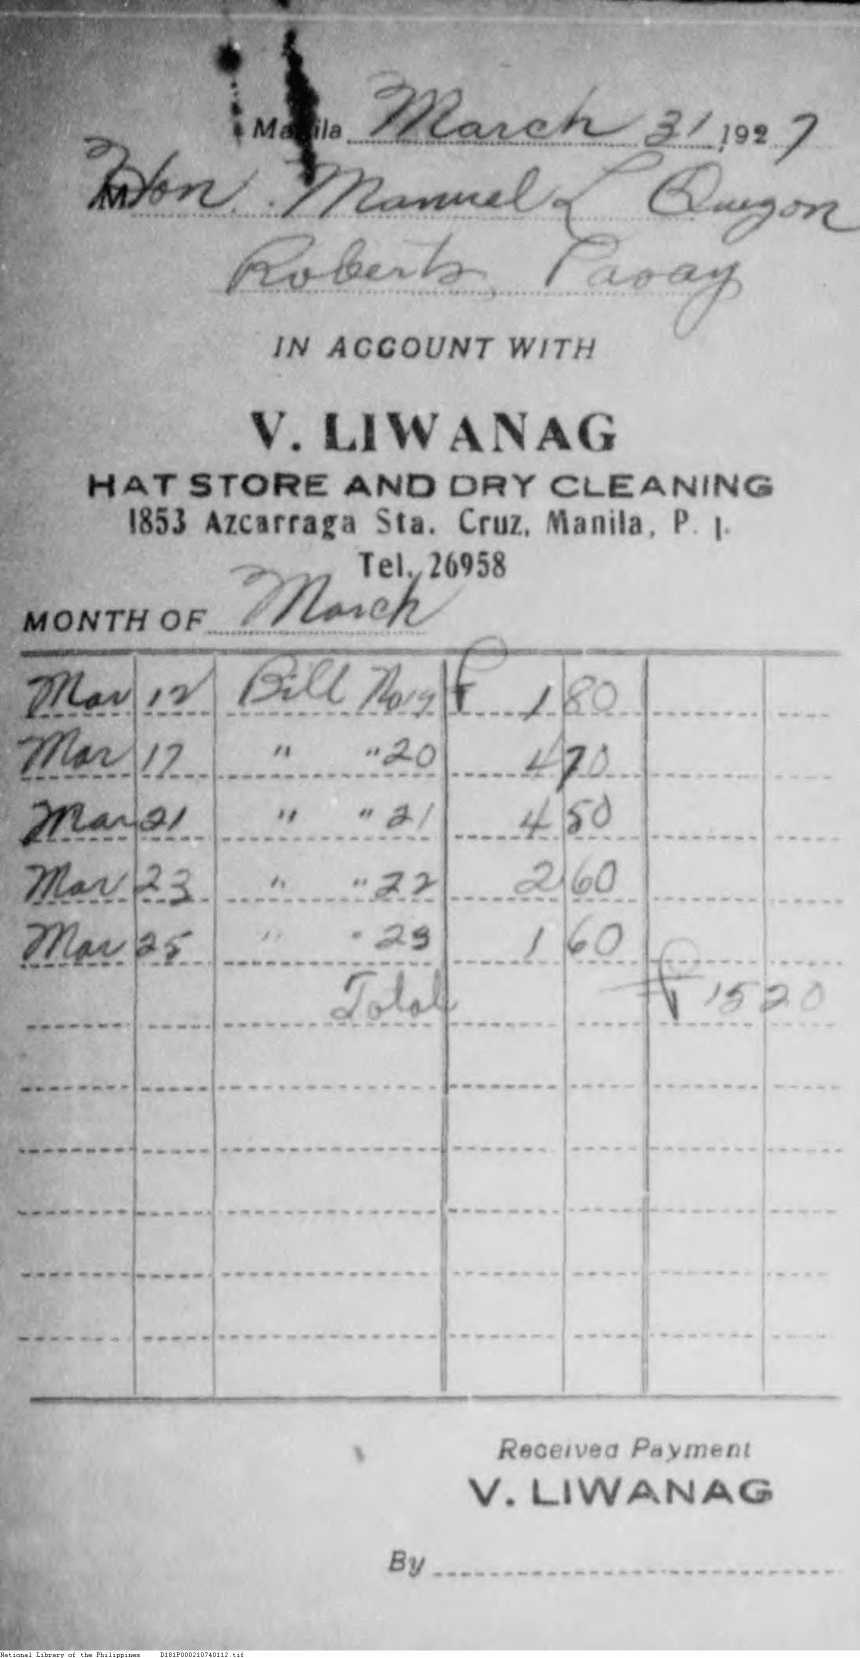 Manila March 31, 1927
Hon. Manuel L Quezon
Roberts, Pasay
IN ACCOUNT WITH
V. LIWANAG
HAT STORE AND DRY CLEANING
1853 Azcarraga Sta. Cruz, Manila, P. I.
Tel. 26958
MONTH OF March
Mar 12 Bill No 19 ₱ 1 80
Mar 17 " " 20 4 70
Mar 21 " " 21 4 50
Mar 23 " " 22 2 60
Mar 25 " " 23 1 60
Total ₱ 15 20
Received Payment
V. LIWANAG
By
National Library of the Philippines D181P000210740112.tif